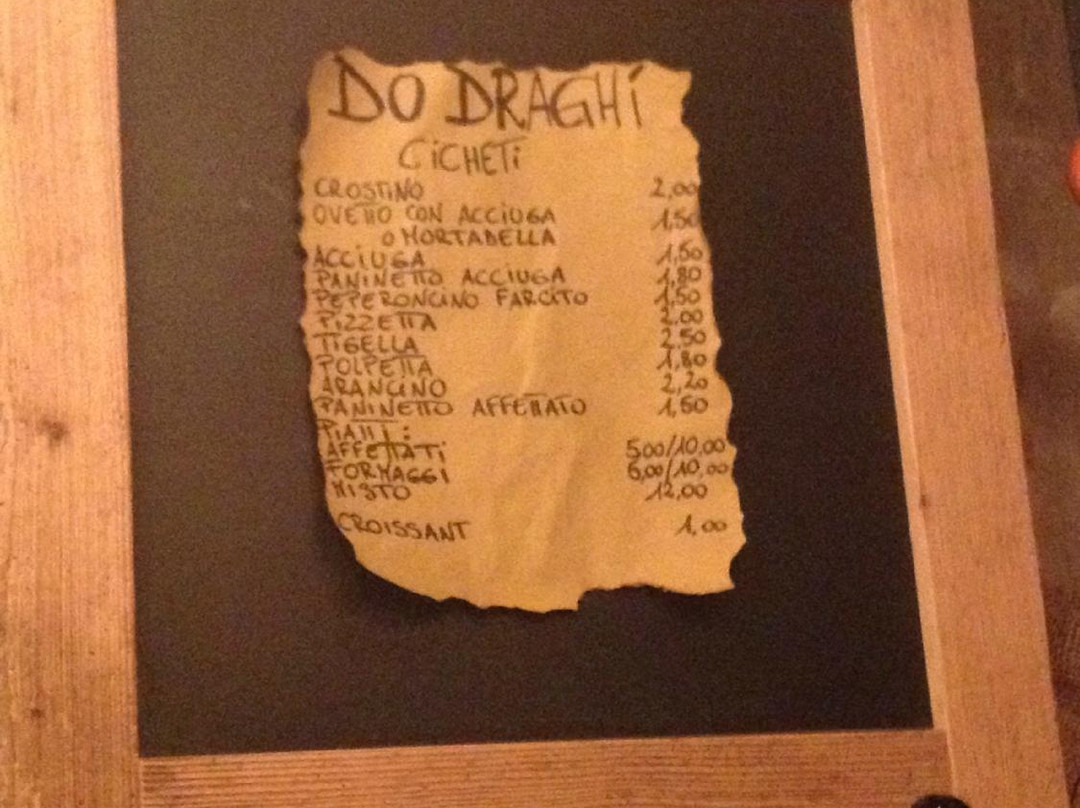 DO DRAGHi
CiCHETi
CROSTINO 2,00
OVETTO CON ACCIUGA 1,50
O MORTADELLA
ACCIUGA 1,50
PANINETTO ACCIUGA 1,80
PEPERONCINO FARCITO 1,50
PIZZETTA 2,00
TIGELLA 2,50
POLPETTA 1,80
ARANCINO 2,20
PANINETTO AFFETTATO 1,50
PIATTI:
AFFETTATi 5,00/10,00
FORMAGGI 6,00/10,00
MISTO 12,00
CROISSANT 1,00